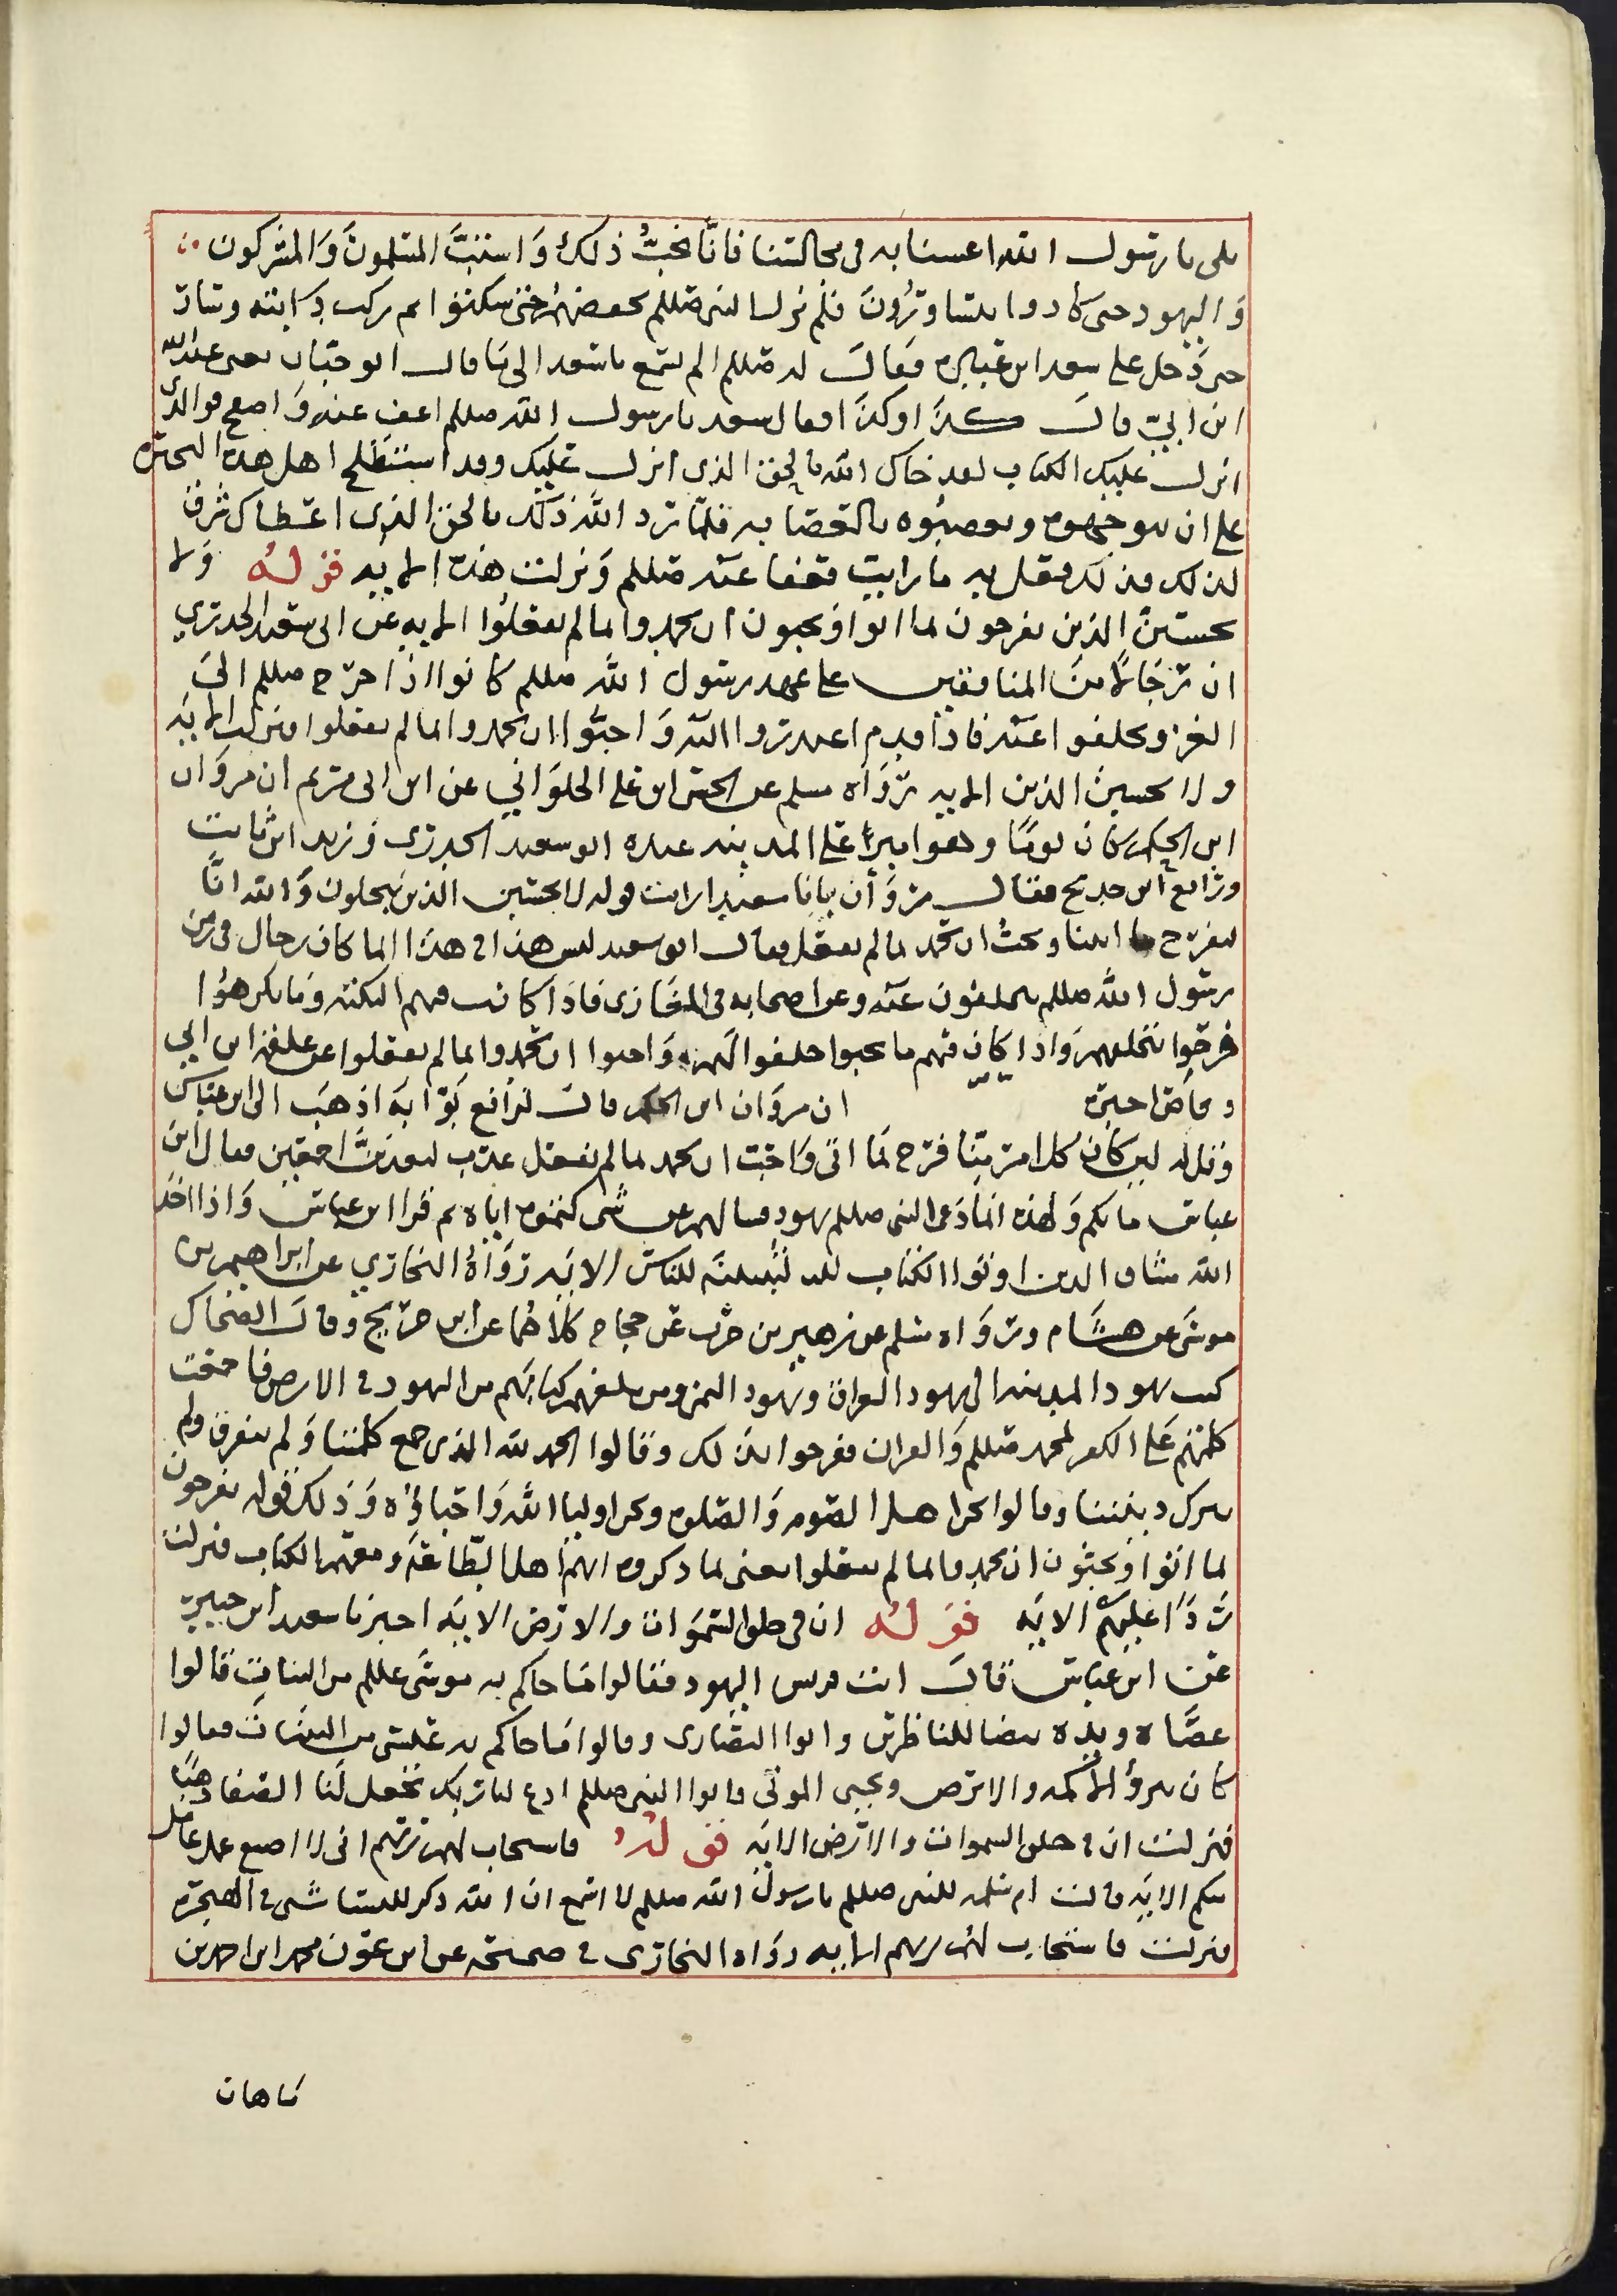 بلى يا رسول الله اغشنا به في مجالسنا فانا نحبُّ ذلك وَاستبَّ المسلمونَ وَالمشركون
وَاليهود حتى كادوا يتساورُونَ فلم يزل النبي صللم يخفضهم حتى سكتوا ثم ركب دابته وسار
حتى دَخل على سعد ابن عبادة فقالَ له صللم الم تسمع يا سعد الى ما قال ابو حباب يعني عبد الله
ابن ابيّ قالَ كذا وكذا فقال سعد يا رسول الله صللم اعف عنه وَاصفح فوالذي
انزل عليك الكتاب لقد جاك الله بالحق الذى انزل عليك وقد اصطلح اهل هذه البحيرة
على ان يتوجوه ويعصبُوه بالعصابه فلما رد الله ذلك بالحق الذى اعطاك شرق
لذلك فذلك فعل به ما رايت فعفا عنه صللم وَنزلت هذه الايه قوله وَلا
يحسبنّ الذين يفرحون لما اتوا ويحبون ان يحمدوا بما لم يفعلُوا الايه عن ابى سعد الخدري
ان رجَالا منَ المنافقين على عهد رسول الله صللم كانوا اذا خرج صللم الىَ
الغزو تخلفوا عنه فاذا قدم اعتذروا اليه وَاحبُّوا ان يحمدوا بما لم يفعلوا فنزلت الايه
ولا تحسبنَّ الذين الايه رَوَاه مسلم عن الحسن ابن علي الحلوَاني عن ابن ابى مريم ان مروَان
ابن الحكم كان يومًا وهو اميرًا على المدينه عنده ابو سعيد الخدرى وزيد ابن ثابت
ورافع ابن خديج فقال مروَأن يابا سعيد ارايت قوله لا تحسبن الذين يبخلون وَالله انَّا
لنفرح بما اتينا ونحبُّ ان نحمد بما لم نفعل فقال ابو سعيد ليس هذا في هذا انما كان رجال في زمن
رسول الله صللم يتخلفون عنه وعن اصحابه في المغَازى فاذَا كانت فيهم النكبه وَما يكرهوُا
فرحوا بتخلفهم وَاذا كان فيهم ما يحبوا حلفوا لهم وَاحبوا ان يحمدوا بما لم يفعلوا عن علقمة ابن ابي
وقاص اخبره ان مروَان ابن الحكم قالَ لرَافع بوّابه اذهبَ الى ابن عباس
وقل له لين كان كل امرئ منّا فرح بمَا اتى وَاحبَّ ان يحمد بما لم يفعل عذب لنعذبنَّ اجمعين فقال ابن
عباس ما لكم وَلهذه انما دَعى النبى صللم يهود فسالهم عن شى كتموه اياه ثم قرا ابن عباس وَاذا اخذ
الله ميثاق الذين اوتوا الكتاب ليبيننه للناس الايَه رَوَاهُ البخاري عن ابراهيم بن
موسَى عن هشام ورَوَاه مسلم عن زهير بن حرب عن حجاج كلاهما عن ابن جريج وقالَ الضحاك
كتب يهود المدينه الى يهود العراق ويهود اليمن ومن بلغهم كتابهم من اليهود في الارض فاجتمعت
كلمتهم عَلى الكفر بمحمد صللم وَالقران ففرحوا بذلك وقالوا الحمد لله الذى جمع كلمتنا وَلم نتفرق ولم
نترك ديننا وقالوا نحن اهل الصوم وَالصلوة ونحن اوليا اللهَ وَاحباؤه وَذلك قوله يفرحون
لما اتوا ويحبُّون ان يحمدوا بما لم يفعلوا يعنى لما ذكروه انهم اهل الطاعة ومعهم الكتاب فنزلت
رَدًّا عليهم الايَه قوله ان فى خلق السمَوَات والارض الايَه اخبرنا سعيد ابن جبير
عن ابن عباس قالَ اتت قريش اليهود فقالوا ما جاكم به موسَى عللم من البينات قالوا
عصَاه ويده بيضا للناظرين واتوا النصَارى وقالوا مَا جاكم به عيسى من البينَات فقالوا
كان يبرؤ الاكمه والابرص ويحيى الموتى فاتوا النبى صللم ادع لنا ربك يجعل لنا الصفا ذهبًا
فنزلت ان في خلق السموات والارض الايَه قوله فاستجاب لهم ربهم انى لا اضيع عمل عامل
منكم الايَه قالت ام سلمه للنبى صللم يا رسول الله صللم لا اسمع ان الله ذكر للنسا شى في الهجرة
فنزلت فاستجاب لهم ربهم الايه رَوَاه البخارى في صحيحه عن ابن عوْن محمد ابن احمد بن
ماهان